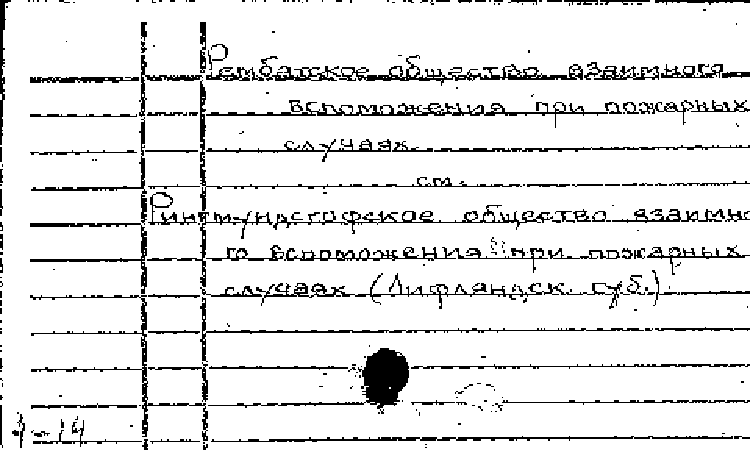 Рембатское общество взаимного
вспоможения при пожарных
случаях
см.
Рингмундсгофское общество взаимно
го вспоможения при пожарных
случаях (Лифляндск. губ.)